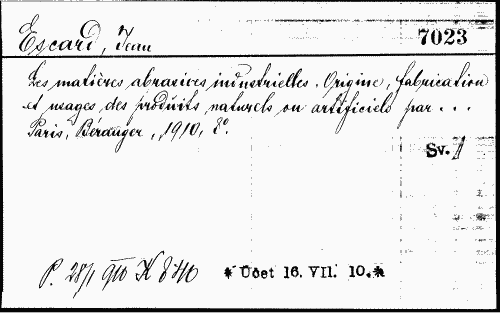 Escard, Jean 7023
Les matières abrasives industrielles. Origine, fabrication
et usages des produits naturels ou artificiels par...
Paris, Béranger, 1910, 8°.
Sv. 1
P. 28/1 910 K 8·40 * Účet 16. VII. 10. *